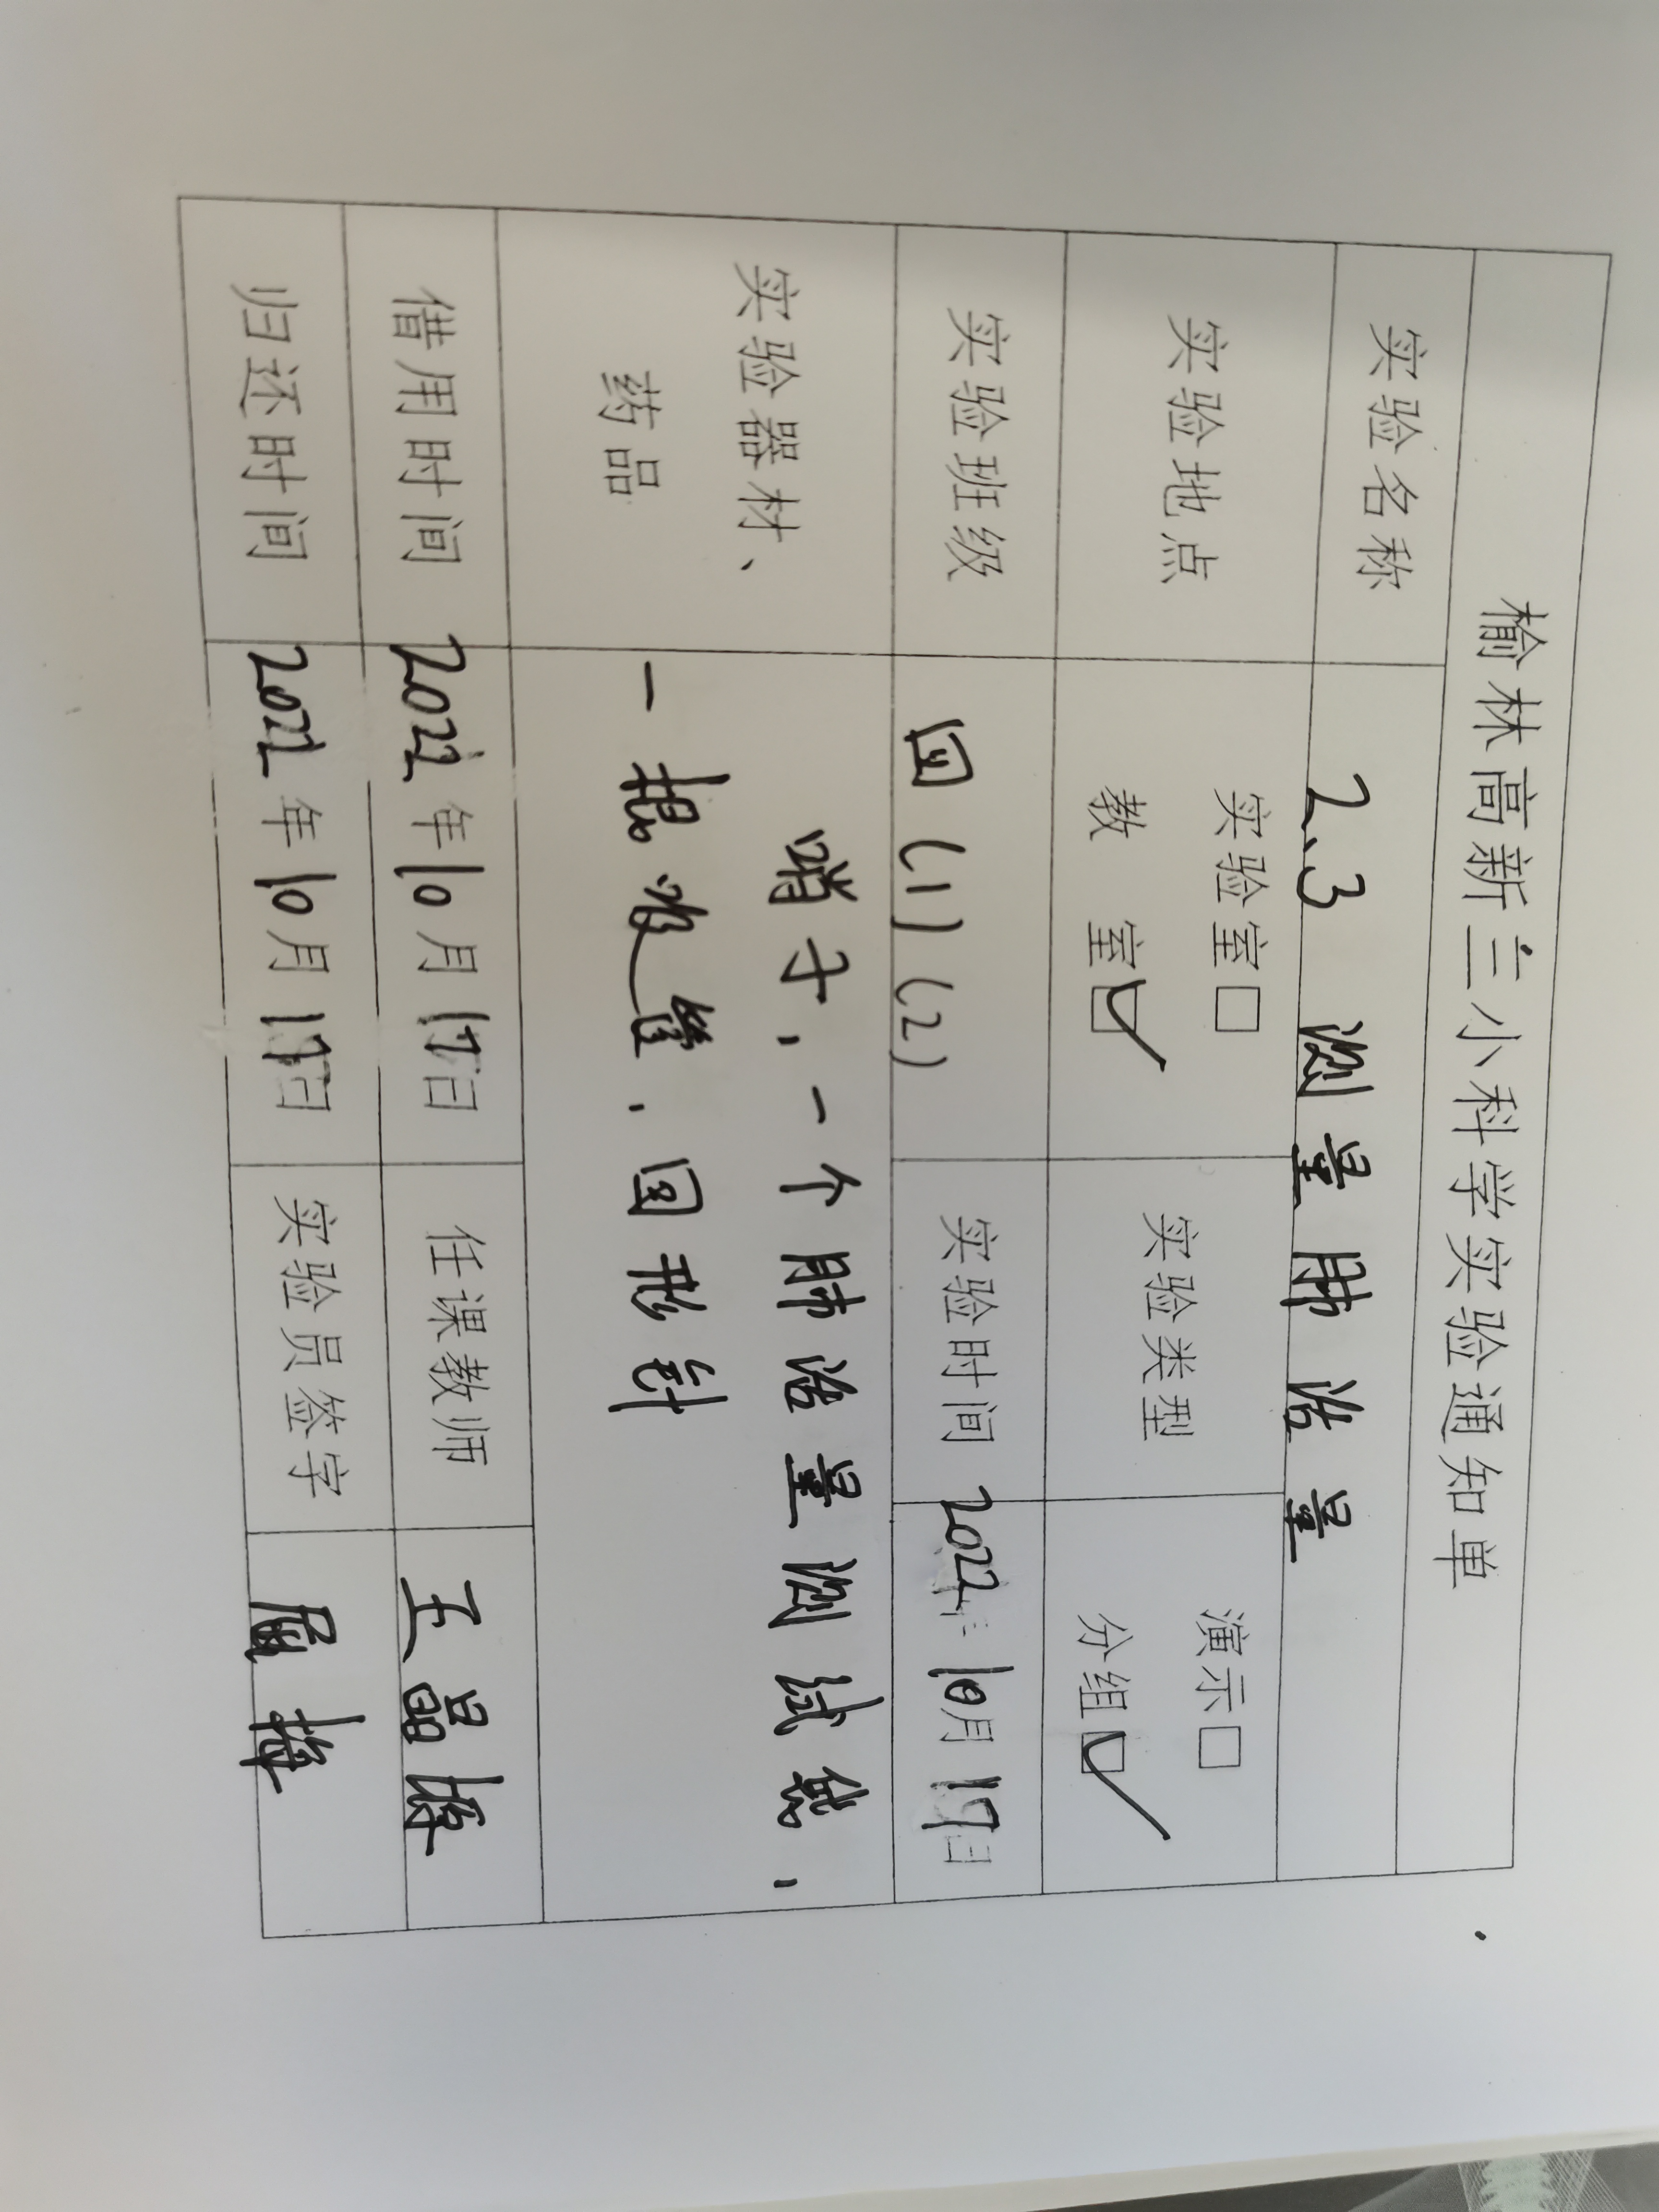 榆林高新三小科学实验通知单
实验名称 2.3 测量肺活量
实验地点 实验室□ 教 室☑ 实验类型 演示□ 分组☑
实验班级 四(1)(2) 实验时间 2022年10月17日
实验器材、药品 哨子,一个肺活量测试袋,
一根吸管,回形针
借用时间 2022年10月17日 任课教师 王晶
归还时间 2022年10月17日 实验员签字 屈